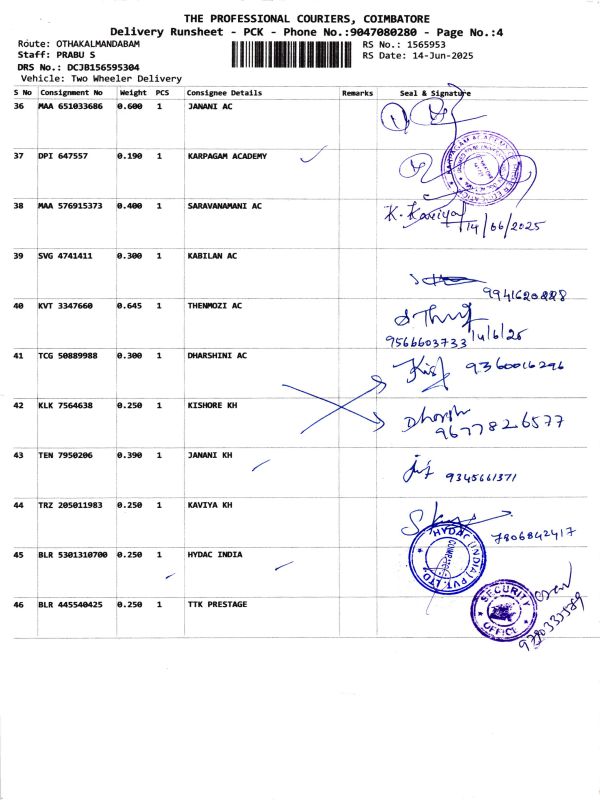 THE PROFESSIONAL COURIERS, COIMBATORE
Delivery Runsheet - PCK - Phone No.:9047080280 - Page No.:4
Route: OTHAKALMANDABAM
RS No.: 1565953
Staff: PRABU S
RS Date: 14-Jun-2025
DRS No.: DCJB156595304
Vehicle: Two Wheeler Delivery
S No Consignment No Weight PCS Consignee Details Remarks Seal & Signature
36 MAA 651033686 0.600 1 JANANI AC
37 DPI 647557 0.190 1 KARPAGAM ACADEMY
38 MAA 576915373 0.400 1 SARAVANAMANI AC K. Kaviya 14/06/2025
39 SVG 4741411 0.300 1 KABILAN AC
9941620228
40 KVT 3347660 0.645 1 THENMOZI AC
9566603733 14/6/25
41 TCG 50889988 0.300 1 DHARSHINI AC 9360016296
42 KLK 7564638 0.250 1 KISHORE KH
9677826577
43 TEN 7950206 0.390 1 JANANI KH
9345661371
44 TRZ 205011983 0.250 1 KAVIYA KH
7806842417
45 BLR 5301310700 0.250 1 HYDAC INDIA
HYDAC (INDIA) PVT. LTD.
46 BLR 445540425 0.250 1 TTK PRESTAGE
SECURITY OFFICE